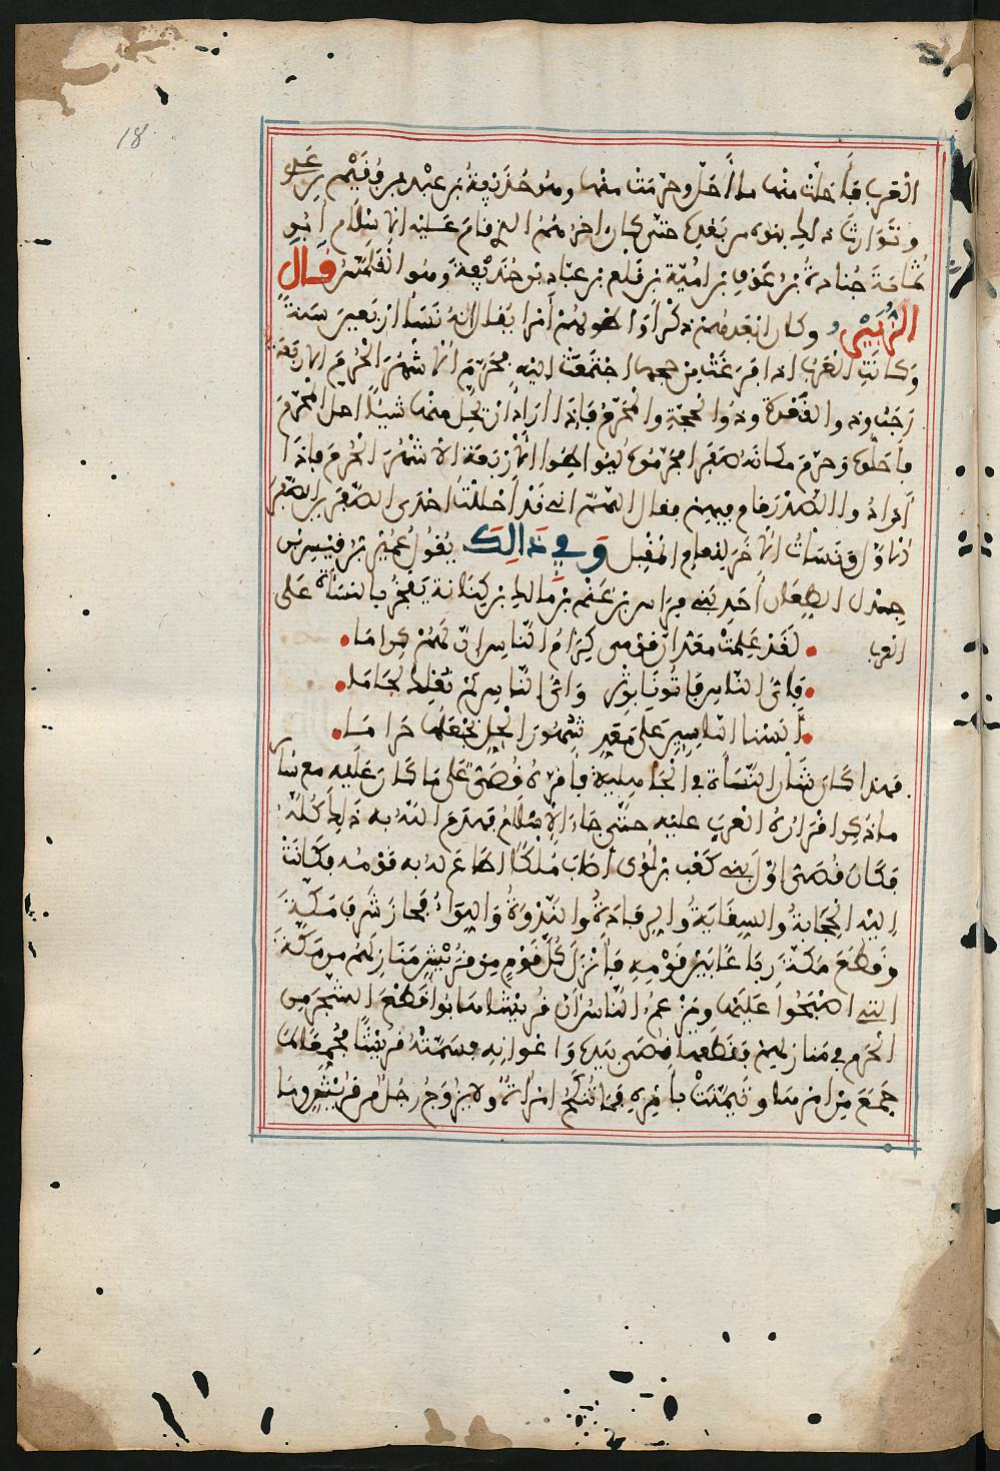 18
العرب فأحلت منها ما أحل وحرمت منها وهو حذيفة بن عبد بن فقيم بن عدي
وتوارث ذلك بنوه من بعده حتى كان اخرهم الذي قام عليه الاسلام أبو
ثمامة جنادة بن عوف بن امية بن قلع بن عباد بن حذيفة وهو القلمس قال
الزبير وكان ابعدهم ذكرا واطولهم أمرا يقال انه نسأ اربعين سنة
وكانت العرب اذا فرغت من حجها اجتمعت اليه فحرم الاشهر الحرم الاربعة
رجب وذو القعدة وذو الحجة والمحرم فإذا أراد ان يحل منها شيئا احل المحرم
فأحلوه وحرم مكانه صفر فحرموه ليواطوا الاربعة الاشهر الحرم فإذا
أرادوا الصدر قام فيهم فقال اللهم اني قد أحللت احدى الصفرين الصفر
الاول ونسأت الاخر للعام المقبل وفي ذالك يقول عمير بن قيس بن
جذل الطعان أحد بني فراس بن غنم بن مالك بن كنانة يفخر بالنسأة على
العرب لقد علمت معد ان قومي كرام الناس ان لهم كراما
فاى الناس فاتونا بوتر واى الناس لم تعلك لجاما
ألسنا الناسيين على معد شهور الحل نجعلها حراما
فهذا كان شأن النسأة في الجاهلية فأمره قصى على ما كان عليه مع سائر
ما ذكرا قراره العرب عليه حتى جاء الاسلام فهدم الله به ذلك كله
فكان قصى اول بني كعب بن لؤى أصاب ملكا اطاع له به قومه فكانت
اليه الحجابة والسقاية والرفادة والندوة واللواء فحاز شرف مكة
وقطع مكة رباعا بين قومه فأنزل كل قوم من قريش منازلهم من مكة
التي اصبحوا عليها ويزعم الناس ان قريشا هابوا قطع الشجر من
الحرم في منازلهم فقطعها قصى بيده واعوانه فسمته قريش مجمعا لما
جمع من امرها وتيمنت بأمره فما تنكح امرأة ولا يتزوج رجل من قريش وما